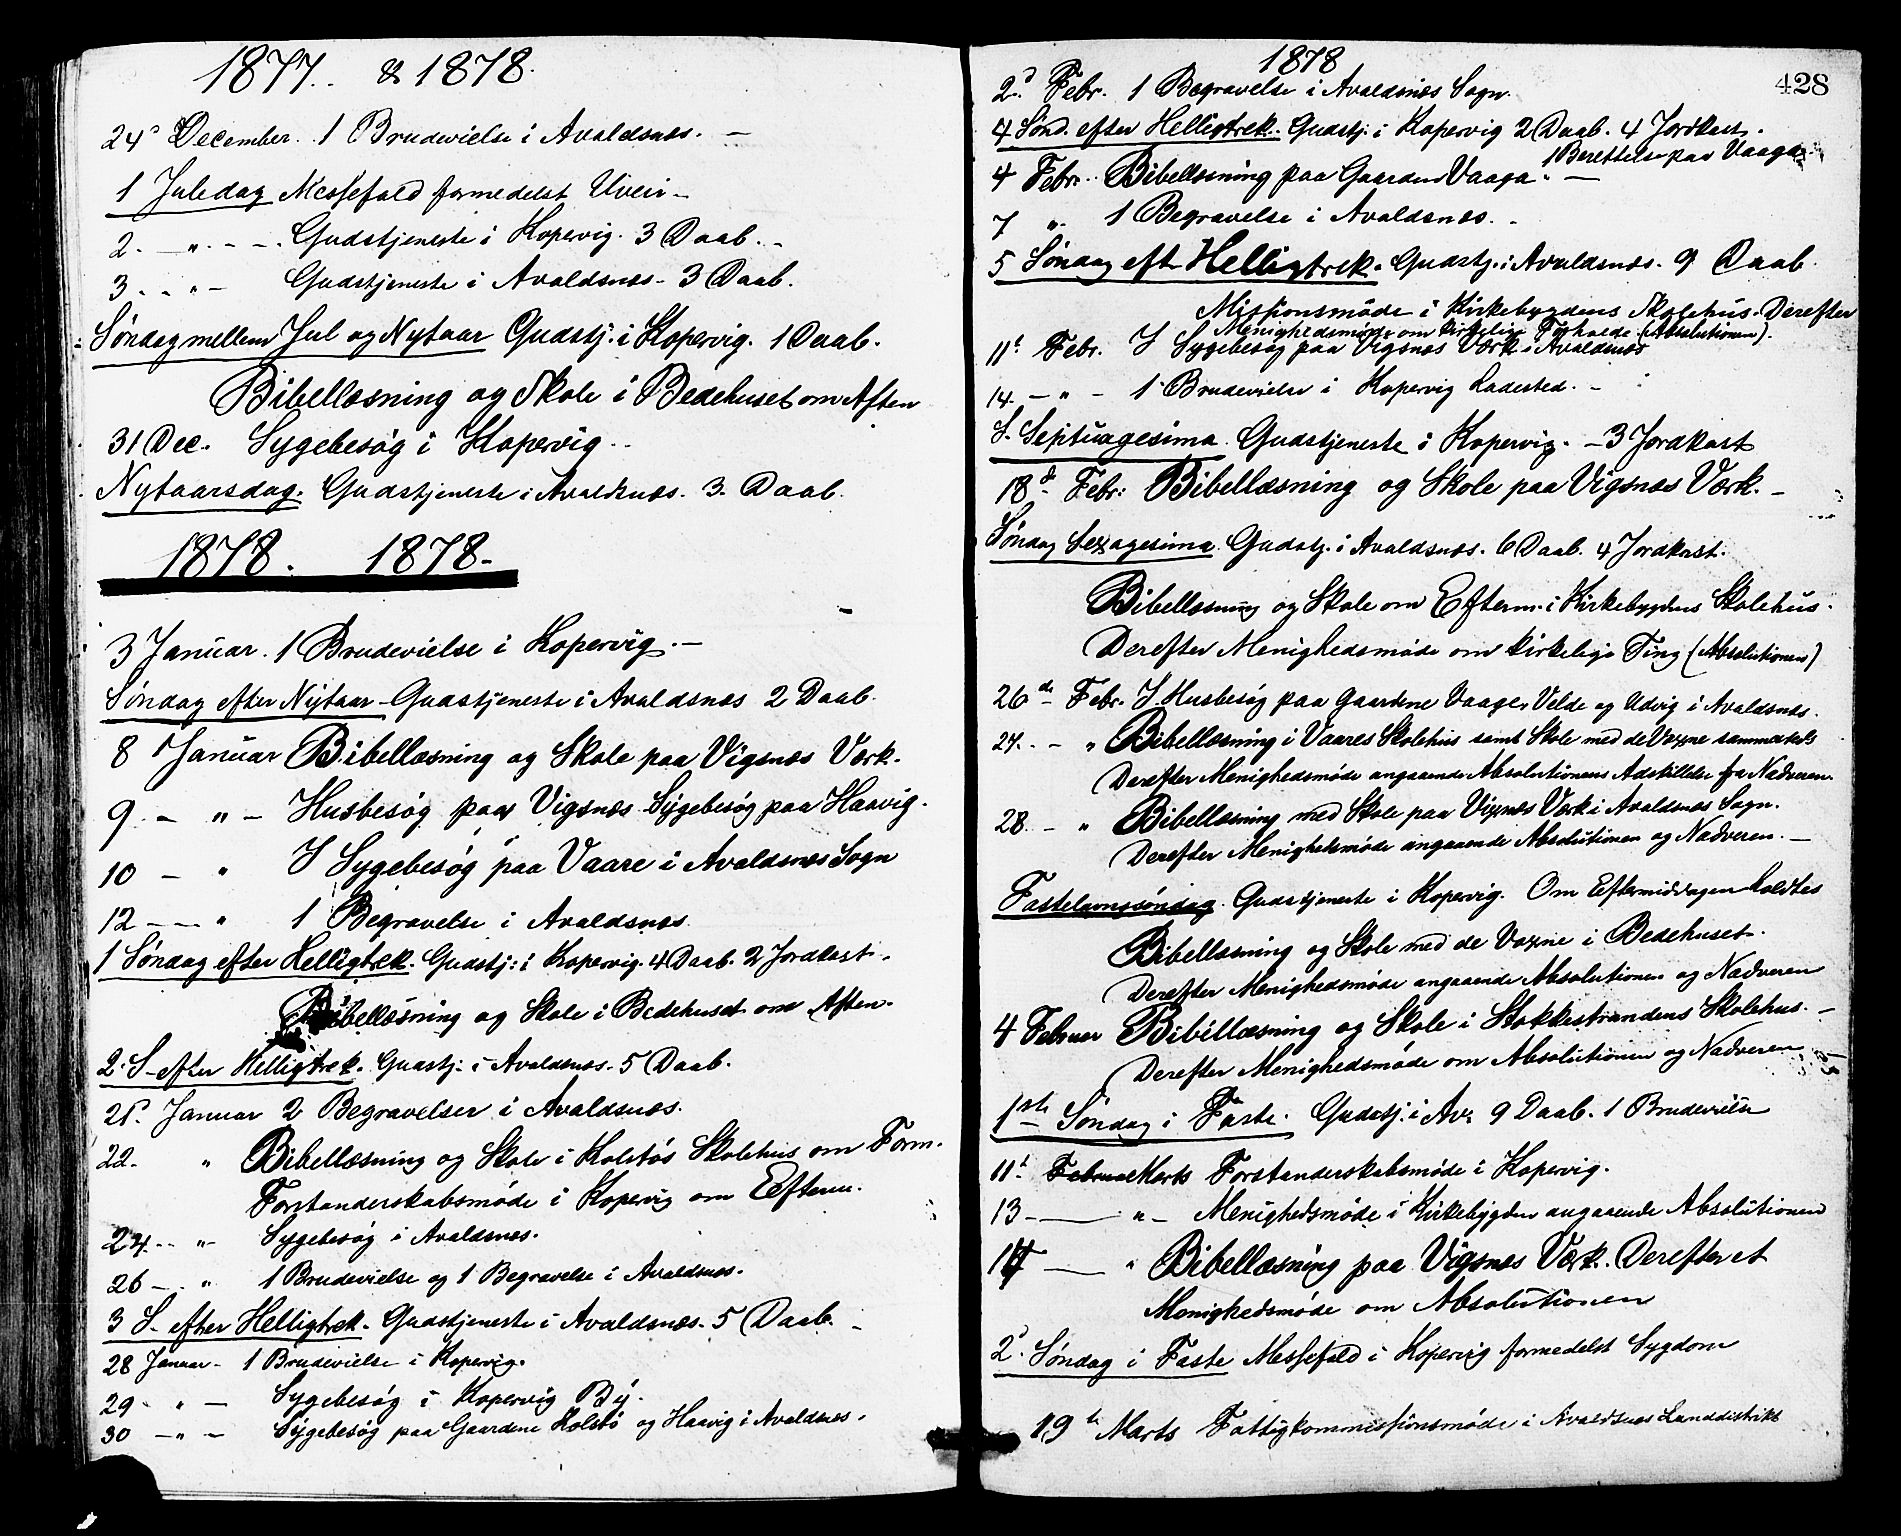 1877. & 1878.
24de December. 1 Brudevielse i Avaldsnæs. —
1 Juledag Messefald formedelst Uveir —
2. — " — - Gudstjeneste i Kopervig. 3 Daab. -
3 - - " - Gudstjeneste i Avaldsnæs - 3 Daab.
Søndag mellem Jul og Nytaar Gudstj. i Kopervig. 1 Daab.
Bibellæsning og Skole i Bedehuset om Aften
31 Dec. Sygebesøg i Kopervig -
Nytaarsdag. Gudstjeneste i Avaldsnæs. 3. Daab.
1878. 1878.
3 Januar. 1 Brudevielse i Kopervig. —
Søndag efter Nytaar - Gudstjeneste i Avaldsnæs 2 Daab.
8 Januar Bibellæsning og Skole paa Vigsnæs Værk.
9. — " — Husbesøg paa Vigsnæs. Sygebesøg paa Haavig.
10 — " Sygebesøg paa Vaare i Avaldsnæs Sogn
12 — — " 1 Begravelse i Avaldsnæs.
1 Søndag efter Helligtrek. Gudstj: i Kopervig. 4 Daab. 2 Jordkast.
Bibellæsning og Skole i Bedehuset om Aften.
2. S. efter Helligtrek. Gudstj. i Avaldsnæs. 5 Daab.
21. Januar 2 Begravelser i Avaldsnæs.
22. " Bibellæsning og Skole i Kolstøs Skolehus om Form.
Forstanderskabsmøde i Kopervig om Efterm.
24. - - " - Sygebesøg i Avaldsnæs.
26 — . " 1 Brudevielse og 1 Begravelse i Avaldsnæs.
3 S. efter Helligtrek. Gudstjeneste i Avaldsnæs. 5 Daab. -
28 Januar - 1 Brudevielse i Kopervig.
29 - " — Sygebesøg i Kopervig By.
30 — " — Sygebesøg paa Gaardene Kolstø og Haavig i Avaldsnæs.
1878
428
2. Febr. 1 Begravelse i Avaldsnæs Sogn.
4 Sønd. efter Helligtrek. Gudstj. i Kopervig 2 Daab. 4 Jordkast.
1 Berettelse paa Vaage
4 Febr. Bibellæsning paa Gaarden Vaaga. —
7 " 1 Begravelse i Avaldsnæs. -
5 Søndag eft Helligtrek. Gudstj. i Avaldsnæs. 9 Daab.
Missionsmøde i Kirkebygdens Skolehus. Derefter
Menighedsmøde om kirkelige Forholde (Absolutionen).
11t Febr. Sygebesøg paa Vigsnæs Værk i Avaldsnæs
14. — " - 1 Brudevielse i Kopervig Ladested. -
S. Septuagesima. Gudstjeneste i Kopervig. - 3 Jordkast
18d Febr: Bibellæsning og Skole paa Vigsnæs Værk. —
Søndag Sexagesima. Gudstj. i Avaldsnæs. 6 Daab. 4 Jordkast.
Bibellæsning og Skole om Efterm. i Kirkebygdens Skolehus.
Derefter Menighedsmøde om kirkelige Ting (Absolutionen)
26de Febr. Husbesøg paa Gaardene Vaage, Velde og Udvig i Avaldsnæs.
27. - - " Bibellæsning i Vaares Skolehus samt Skole med de Voxne sammesteds
Derefter Menighedsmøde angaaende Absolutionens Adskillelse fra Nadveren.
28. - " Bibellæsning med Skole paa Vigsnæs Værk i Avaldsnæs Sogn.
Derefter Menighedsmøde angaaende Absolutionen og Nadveren. —
Fastelavnssøndag. Gudstjeneste i Kopervig. Om Eftermiddagen holdtes
Bibellæsning og Skole med de Voxne i Bedehuset.
Derefter Menighedsmøde angaaende Absolutionen og Nadveren
4 Februar Bibellæsning og Skole i Stokkestrandens Skolehus. —
Derefter Menighedsmøde om Absolutionen og Nadveren
1ste Søndag i Faste. Gudstj. i Av: 9 Daab. 1 Brudevielse
11t Februar Marts Forstanderskabsmøde i Kopervig.
13 — " - Menighedsmøde i Kirkebygden angaaende Absolutionen
14 — " Bibellæsning paa Vigsnæs Værk. Derefter et
Menighedsmøde om Absolutionen
2. Søndag i Faste Messefald i Kopervig formedelst Sygdom
19de Marts Fattigkommissionsmøde i Avaldsnæs Landdistrikt